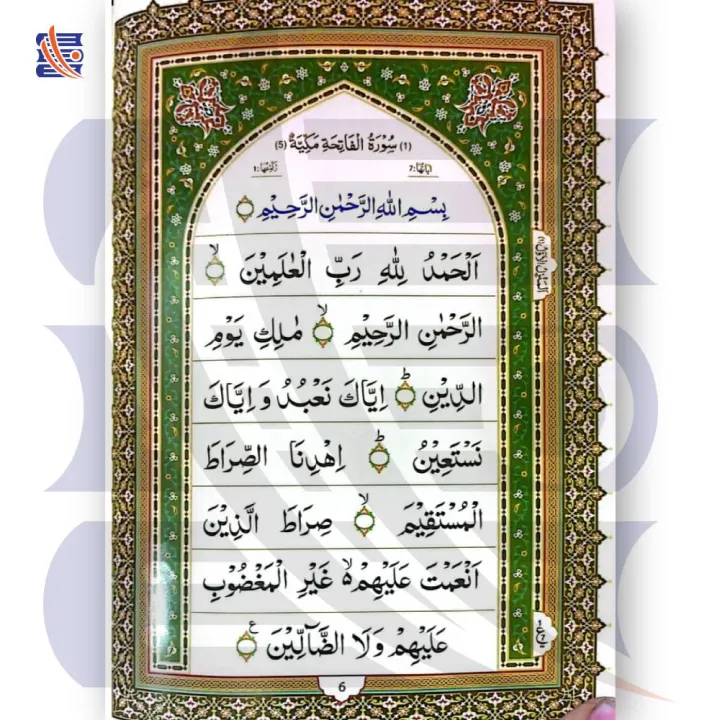 (1) سُوْرَةُ الْفَاتِحَةِ مَكِّيَّةٌ (5)
اٰيَاتُهَا: 7 رُكُوْعُهَا: 1
بِسْمِ اللّٰهِ الرَّحْمٰنِ الرَّحِيْمِ ۝
اَلْحَمْدُ لِلّٰهِ رَبِّ الْعٰلَمِيْنَ ۝ۙ
الرَّحْمٰنِ الرَّحِيْمِ ۝ۙ مٰلِكِ يَوْمِ
الدِّيْنِ ۝ؕ اِيَّاكَ نَعْبُدُ وَ اِيَّاكَ
نَسْتَعِيْنُ ۝ؕ اِهْدِنَا الصِّرَاطَ
الْمُسْتَقِيْمَ ۝ۙ صِرَاطَ الَّذِيْنَ
اَنْعَمْتَ عَلَيْهِمْ ۙ۬ غَيْرِ الْمَغْضُوْبِ
عَلَيْهِمْ وَلَا الضَّآلِّيْنَ ۝ع
6